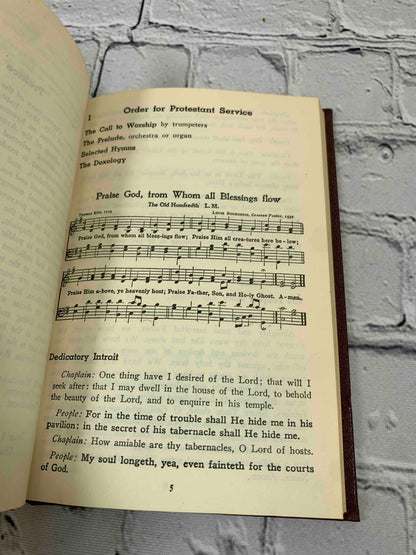 I Order for Protestant Service
The Call to Worship by trumpeters
The Prelude, orchestra or organ
Selected Hymns
The Doxology
Praise God, from Whom all Blessings flow
The Old Hundredth L. M.
THOMAS KEN, 1709 LOUIS BOURGEOIS, Genevan Psalter, 1551
Praise God, from whom all bless-ings flow; Praise Him all crea-tures here be - low;
Praise Him a-bove, ye heavenly host; Praise Fa-ther, Son, and Ho-ly Ghost. A-men.
Dedicatory Introit
Chaplain: One thing have I desired of the Lord; that will I
seek after: that I may dwell in the house of the Lord, to behold
the beauty of the Lord, and to enquire in his temple.
People: For in the time of trouble shall He hide me in his
pavilion: in the secret of his tabernacle shall He hide me.
Chaplain: How amiable are thy tabernacles, O Lord of hosts.
People: My soul longeth, yea, even fainteth for the courts
of God.
5